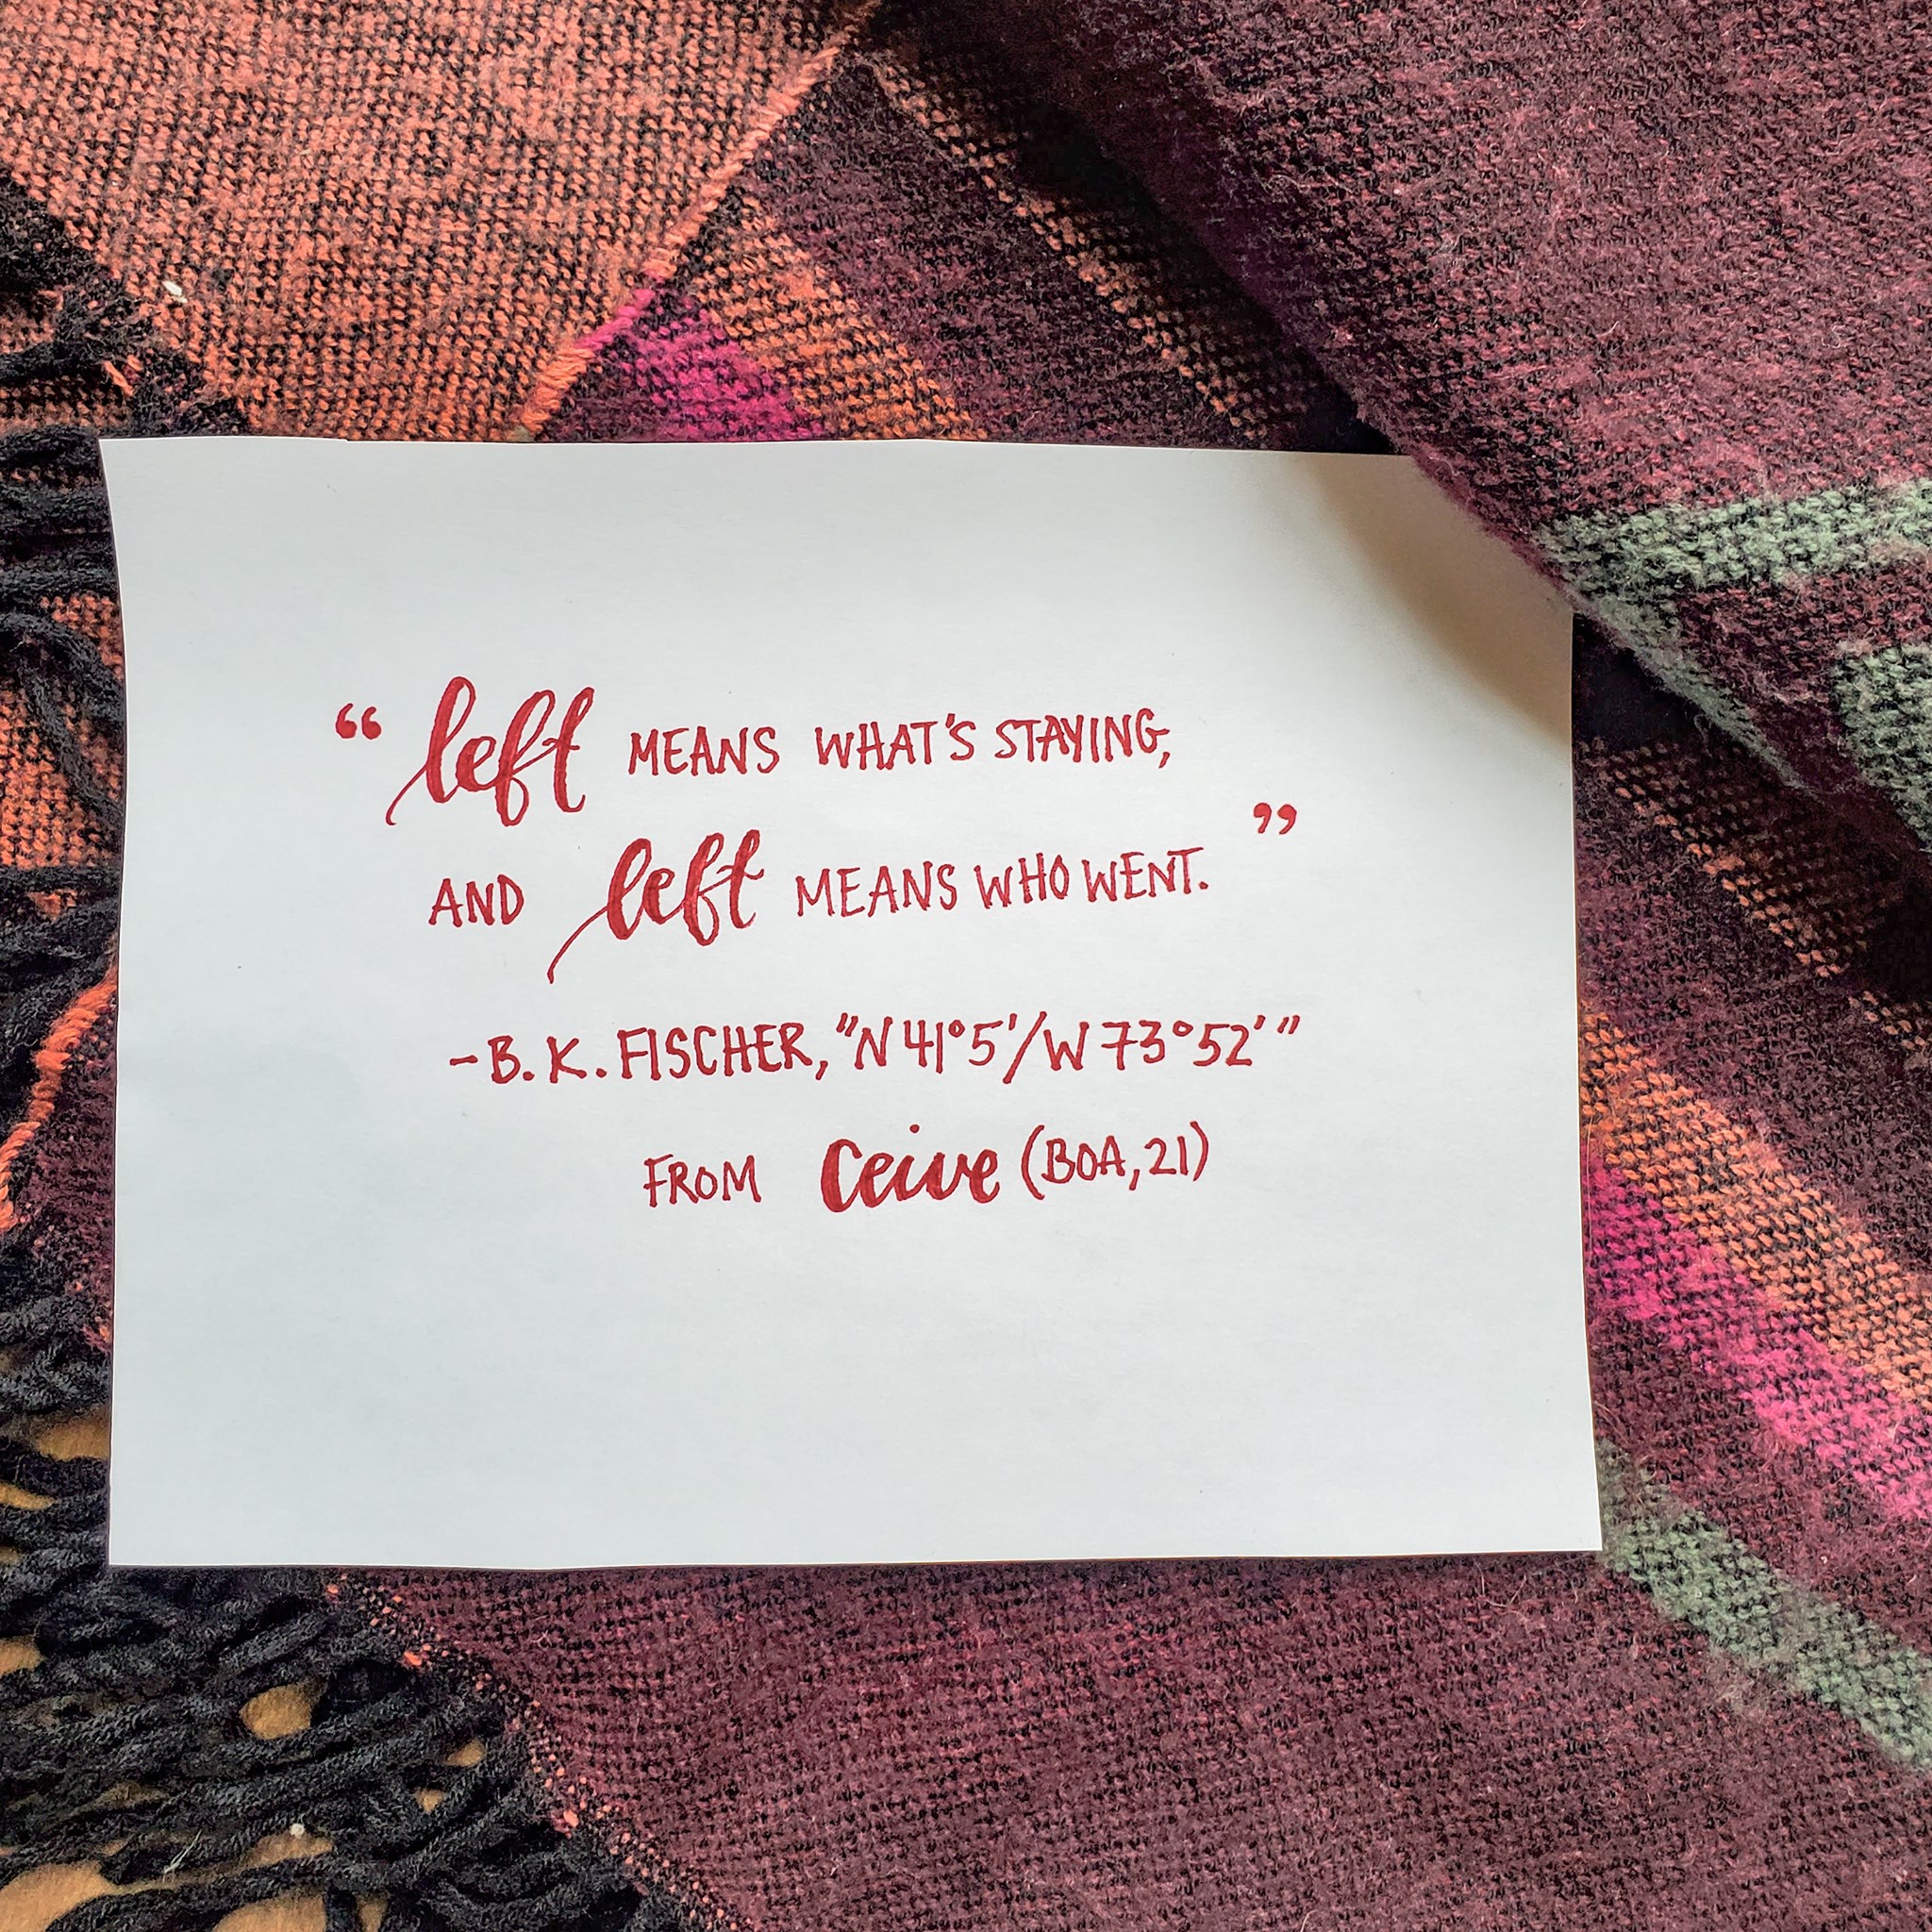 “left MEANS WHAT'S STAYING,
AND left MEANS WHO WENT.”
-B.K. FISCHER, "N 41°5'/W 73°52'"
FROM Ceive (BOA, 21)